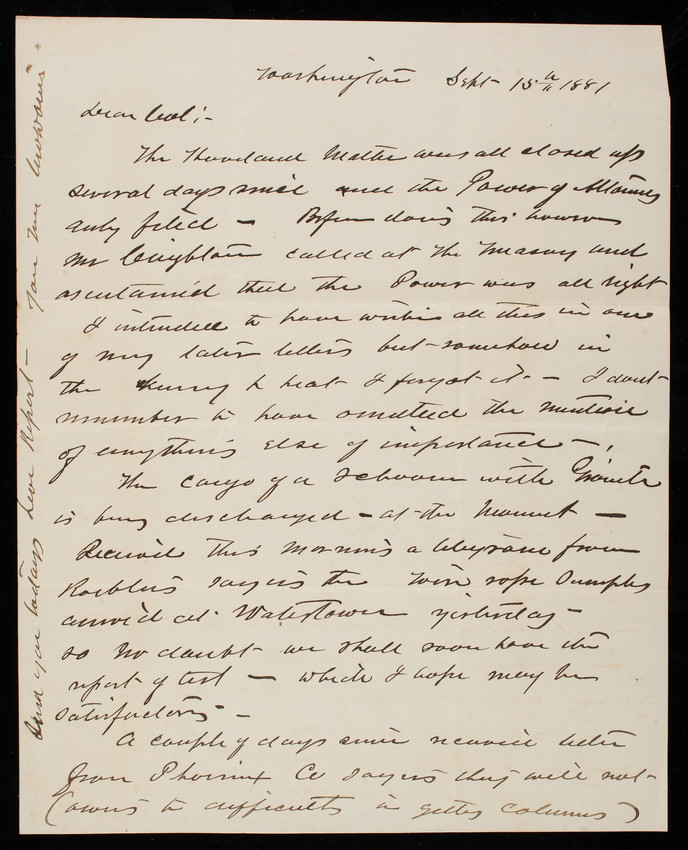 Washington Sept 15th 1881
Dear Col:-
The Matter was all closed up
several days since and the Power of Attorney
duly filed - Before doing this however
Mr Crighton called at the Treasury and
ascertained that the Power was all right
I intended to have written all this in one
of my later letters but somehow in
the hurry & heat I forgot it - I don't
remember to have omitted the mention
of anything else of importance -
The cargo of a schooner with Granite
is being discharged - at the Monument -
Received this morning a telegram from
Roeblings saying the wire rope samples
arrived at Watertown yesterday -
so no doubt we shall soon have the
report of test - which I hope may be
satisfactory -
A couple of days since received letter
from Phoenix Co saying they will not
(owing to difficulty in getting columns)
Send you todays Report - Your